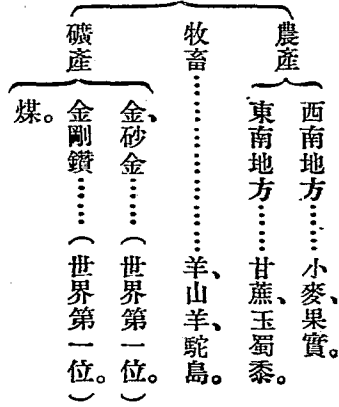 農產
西南地方……小麥、果實。
東南地方……甘蔗、玉蜀黍。
牧畜……………………羊、山羊、駝鳥。
礦產
金、砂金……(世界第一位。)
金剛鑽……(世界第一位。)
煤。